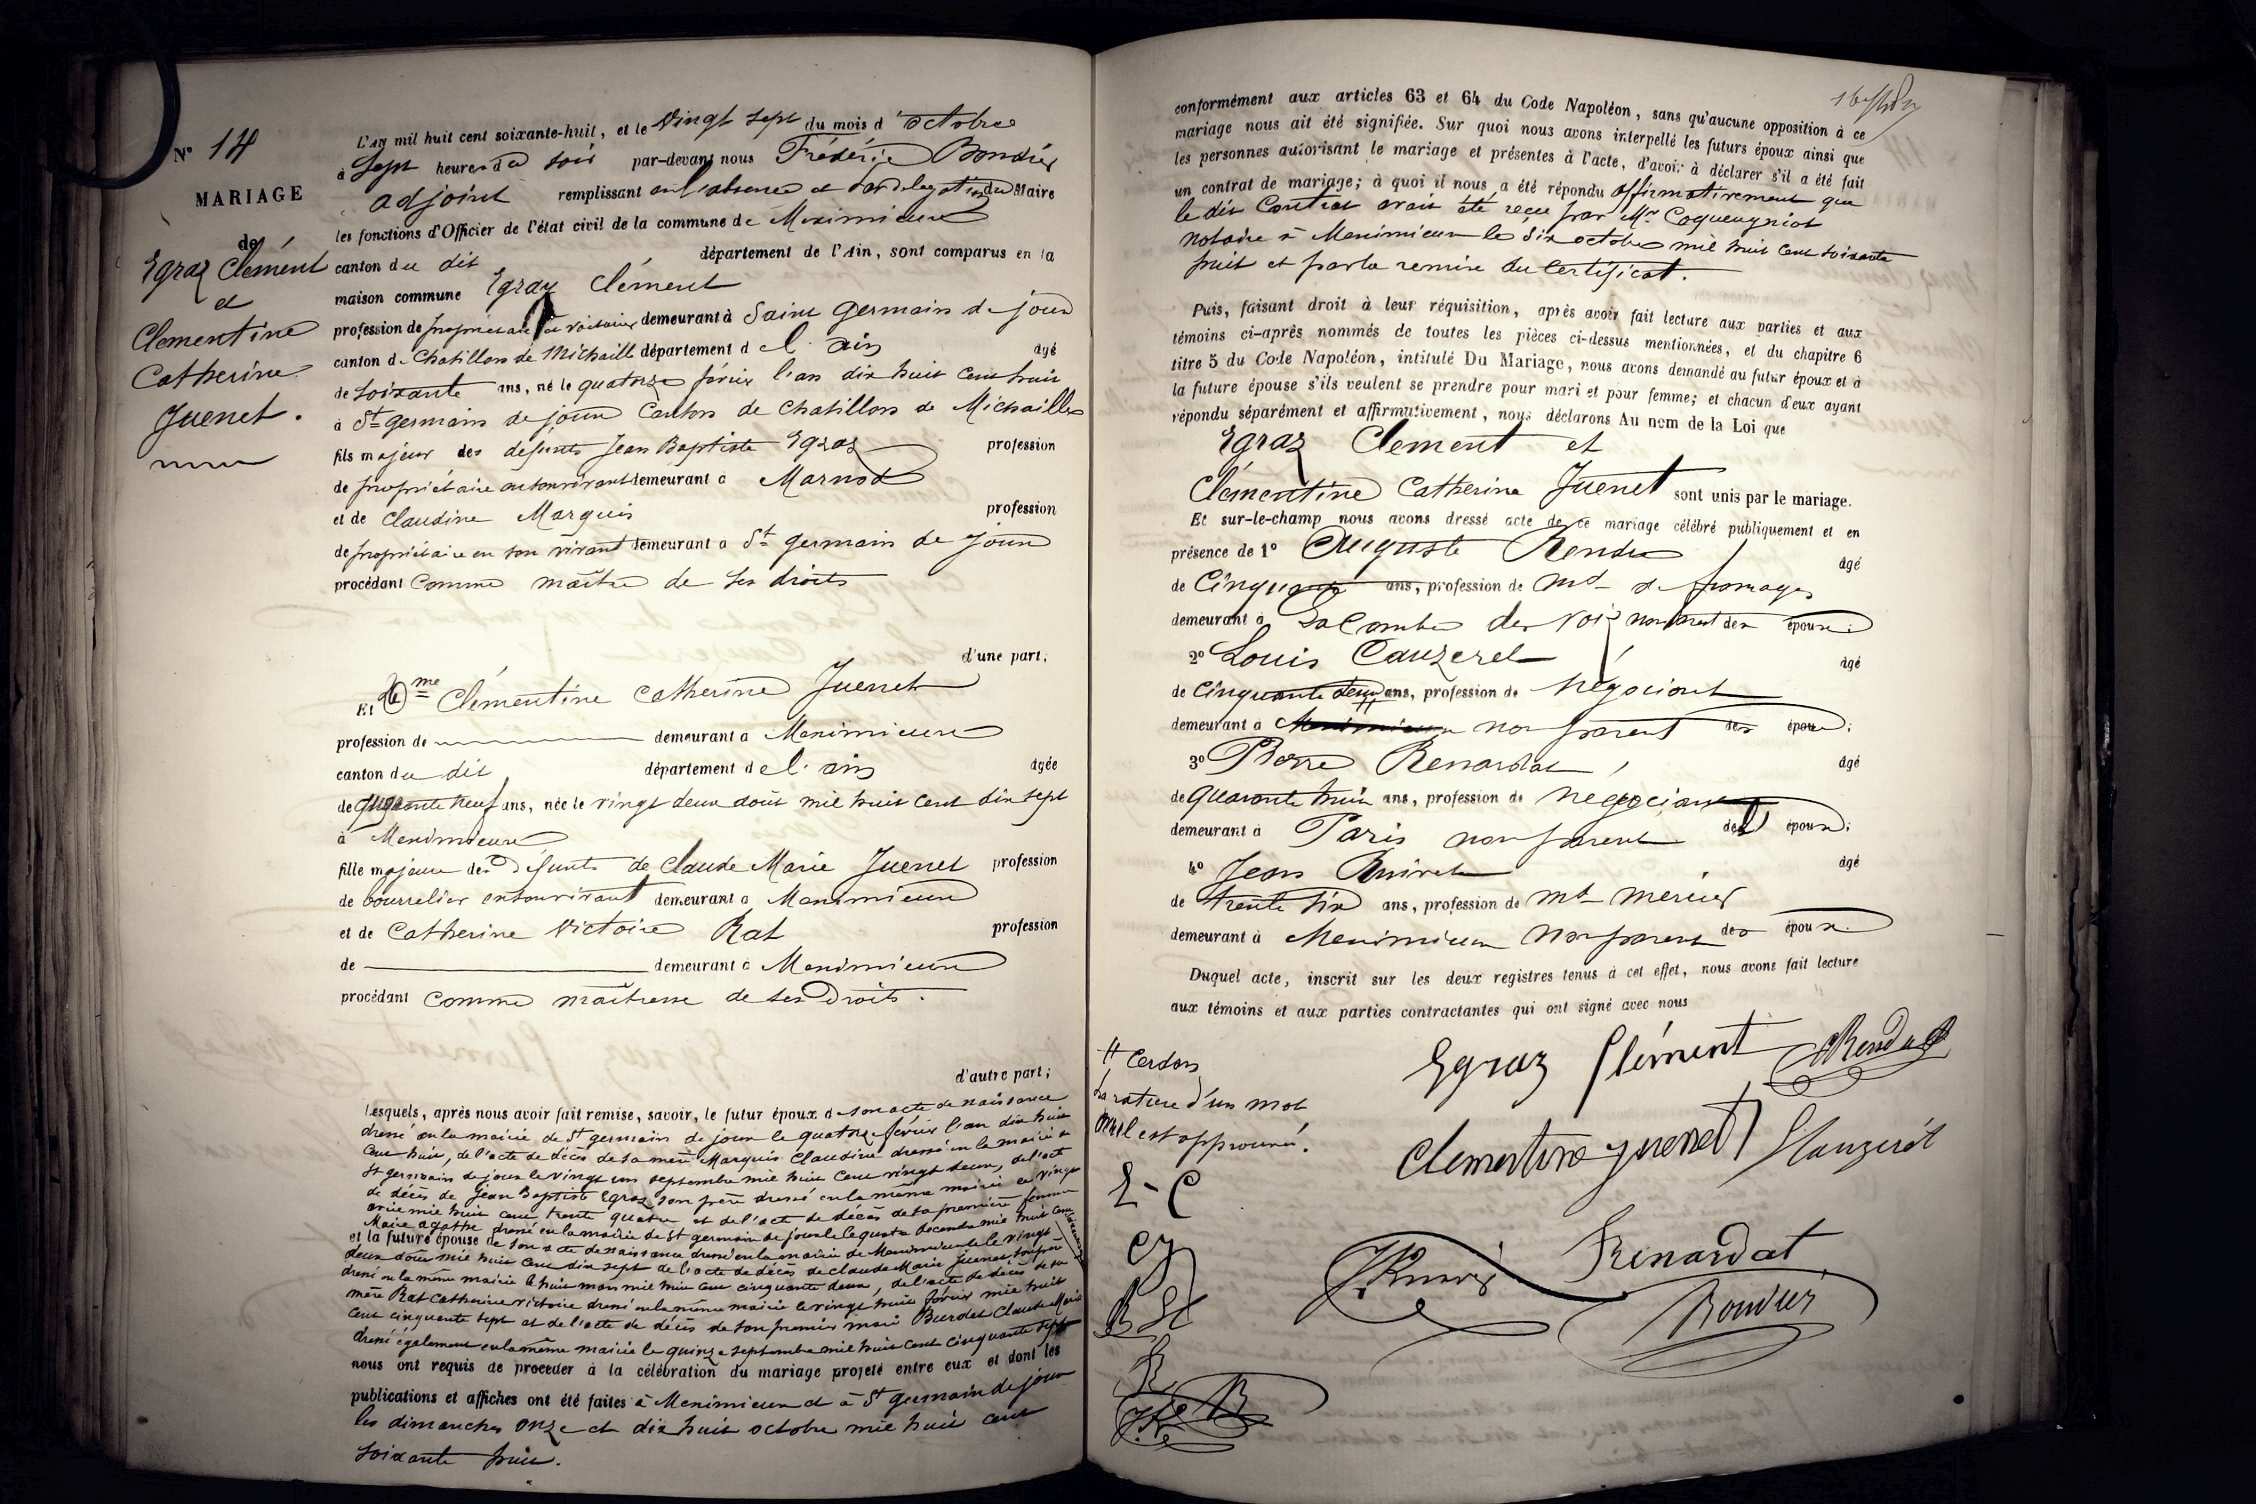 N° 14
MARIAGE
de
Egraz Clément
et
Clementine
Catherine
Juenet.
L'an mil huit cent soixante-huit, et le vingt sept du mois d'octobre
à Sept heures du soir par-devant nous Frédéric Bouvier
adjoint remplissant en l'absence et par délégation du Maire
les fonctions d'Officier de l'état civil de la commune de Meximieux
canton du dit département de l'Ain, sont comparus en la
maison commune Egraz Clément
profession de propriétaire et voiturier demeurant à Saint germain de joux
canton de Chatillon de Michaille département de l'ain agé
de soixante ans, né le quatorze février l'an dix huit cent huit
à St germain de joux Canton de Chatillon de Michaille
fils majeur des défunts Jean Baptiste Egraz profession
de propriétaire en son vivant demeurant à Marnod
et de Claudine Marquis profession
de propriétaire en son vivant demeurant à St germain de joux
procédant comme maître de ses droits
d'une part;
Et Dme Clémentine Catherine Juenet
profession de demeurant à Meximieux
canton du dit département de l'ain agée
de ans, née le vingt deux août mil huit cent dix sept
à Meximieux
fille majeure des défunts de Claude Marie Juenet profession
de bourrelier en son vivant demeurant à Meximieux
et de Catherine Victoire Rat profession
de demeurant à Meximieux
procédant comme maîtresse de ses droits.
d'autre part;
Lesquels, après nous avoir fait remise, savoir, le futur époux de son acte de naissance
dressé en la mairie de St germain de joux le quatorze février l'an dix huit
cent huit, de l'acte de décès de sa mère Marquis Claudine dressé en la mairie de
St germain de joux le vingt un septembre mil huit cent vingt deux, de l'acte
de décès de Jean Baptiste Egraz son père dressé en la même mairie le vingt
avril mil huit cent trente quatre et de l'acte de décès de sa première femme
Marie agathe dressé en la mairie de St germain de joux le quatre décembre mil huit cent
et la future épouse de son acte de naissance dressé en la mairie de Meximieux le vingt
deux août mil huit cent dix sept de l'acte de décès de Claude Marie Juenet son père
dressé en la même mairie le huit mars mil huit cent cinquante deux, de l'acte de décès de sa
mère Rat Catherine victoire dressé en la même mairie le vingt huit février mil huit
cent cinquante sept et de l'acte de décès de son premier mari Burdet Claude Marie
dressé également en la même mairie le quinze septembre mil huit cent cinquante sept
nous ont requis de procéder à la célébration du mariage projeté entre eux et dont les
publications et affiches ont été faites à Meximieux et à St germain de joux
les dimanches onze et dix huit octobre mil huit cent
soixante huit.
conformément aux articles 63 et 64 du Code Napoléon, sans qu'aucune opposition à ce
mariage nous ait été signifiée. Sur quoi nous avons interpellé les futurs époux ainsi que
les personnes autorisant le mariage et présentes à l'acte, d'avoir à déclarer s'il a été fait
un contrat de mariage; à quoi il nous a été répondu affirmativement que
le dit Contrat avait été reçu par Mr Coqueugniot
notaire à Meximieux le dix octobre mil huit cent soixante
huit et par la remise du Certificat.
Puis, faisant droit à leur réquisition, après avoir fait lecture aux parties et aux
témoins ci-après nommés de toutes les pièces ci-dessus mentionnées, et du chapitre 6
titre 5 du Code Napoléon, intitulé Du Mariage, nous avons demandé au futur époux et à
la future épouse s'ils veulent se prendre pour mari et pour femme; et chacun d'eux ayant
répondu séparément et affirmativement, nous déclarons Au nom de la Loi que
Egraz Clement et
Clémentine Catherine Juenet sont unis par le mariage.
Et sur-le-champ nous avons dressé acte de ce mariage célébré publiquement et en
présence de 1° Auguste Rendu agé
de Cinquante ans, profession de md de fromages
demeurant à La Combe des voi non parent des époux;
2° Louis Cauzeret agé
de Cinquante deux ans, profession de négociant
demeurant à Meximieux non parent des époux;
3° Pierre Renardat agé
de quarante huit ans, profession de negociant
demeurant à Paris non parent des époux;
4° Jean Ruivet agé
de trente six ans, profession de md mercier
demeurant à Meximieux non parent des époux.
Duquel acte, inscrit sur les deux registres tenus à cet effet, nous avons fait lecture
aux témoins et aux parties contractantes qui ont signé avec nous
# Cerdon
La rature d'un mot
nul est approuvé.
E-C
CJ
Egraz Clément ARendu
Clementine juenet LCauzerét
Renardat
Bouvier